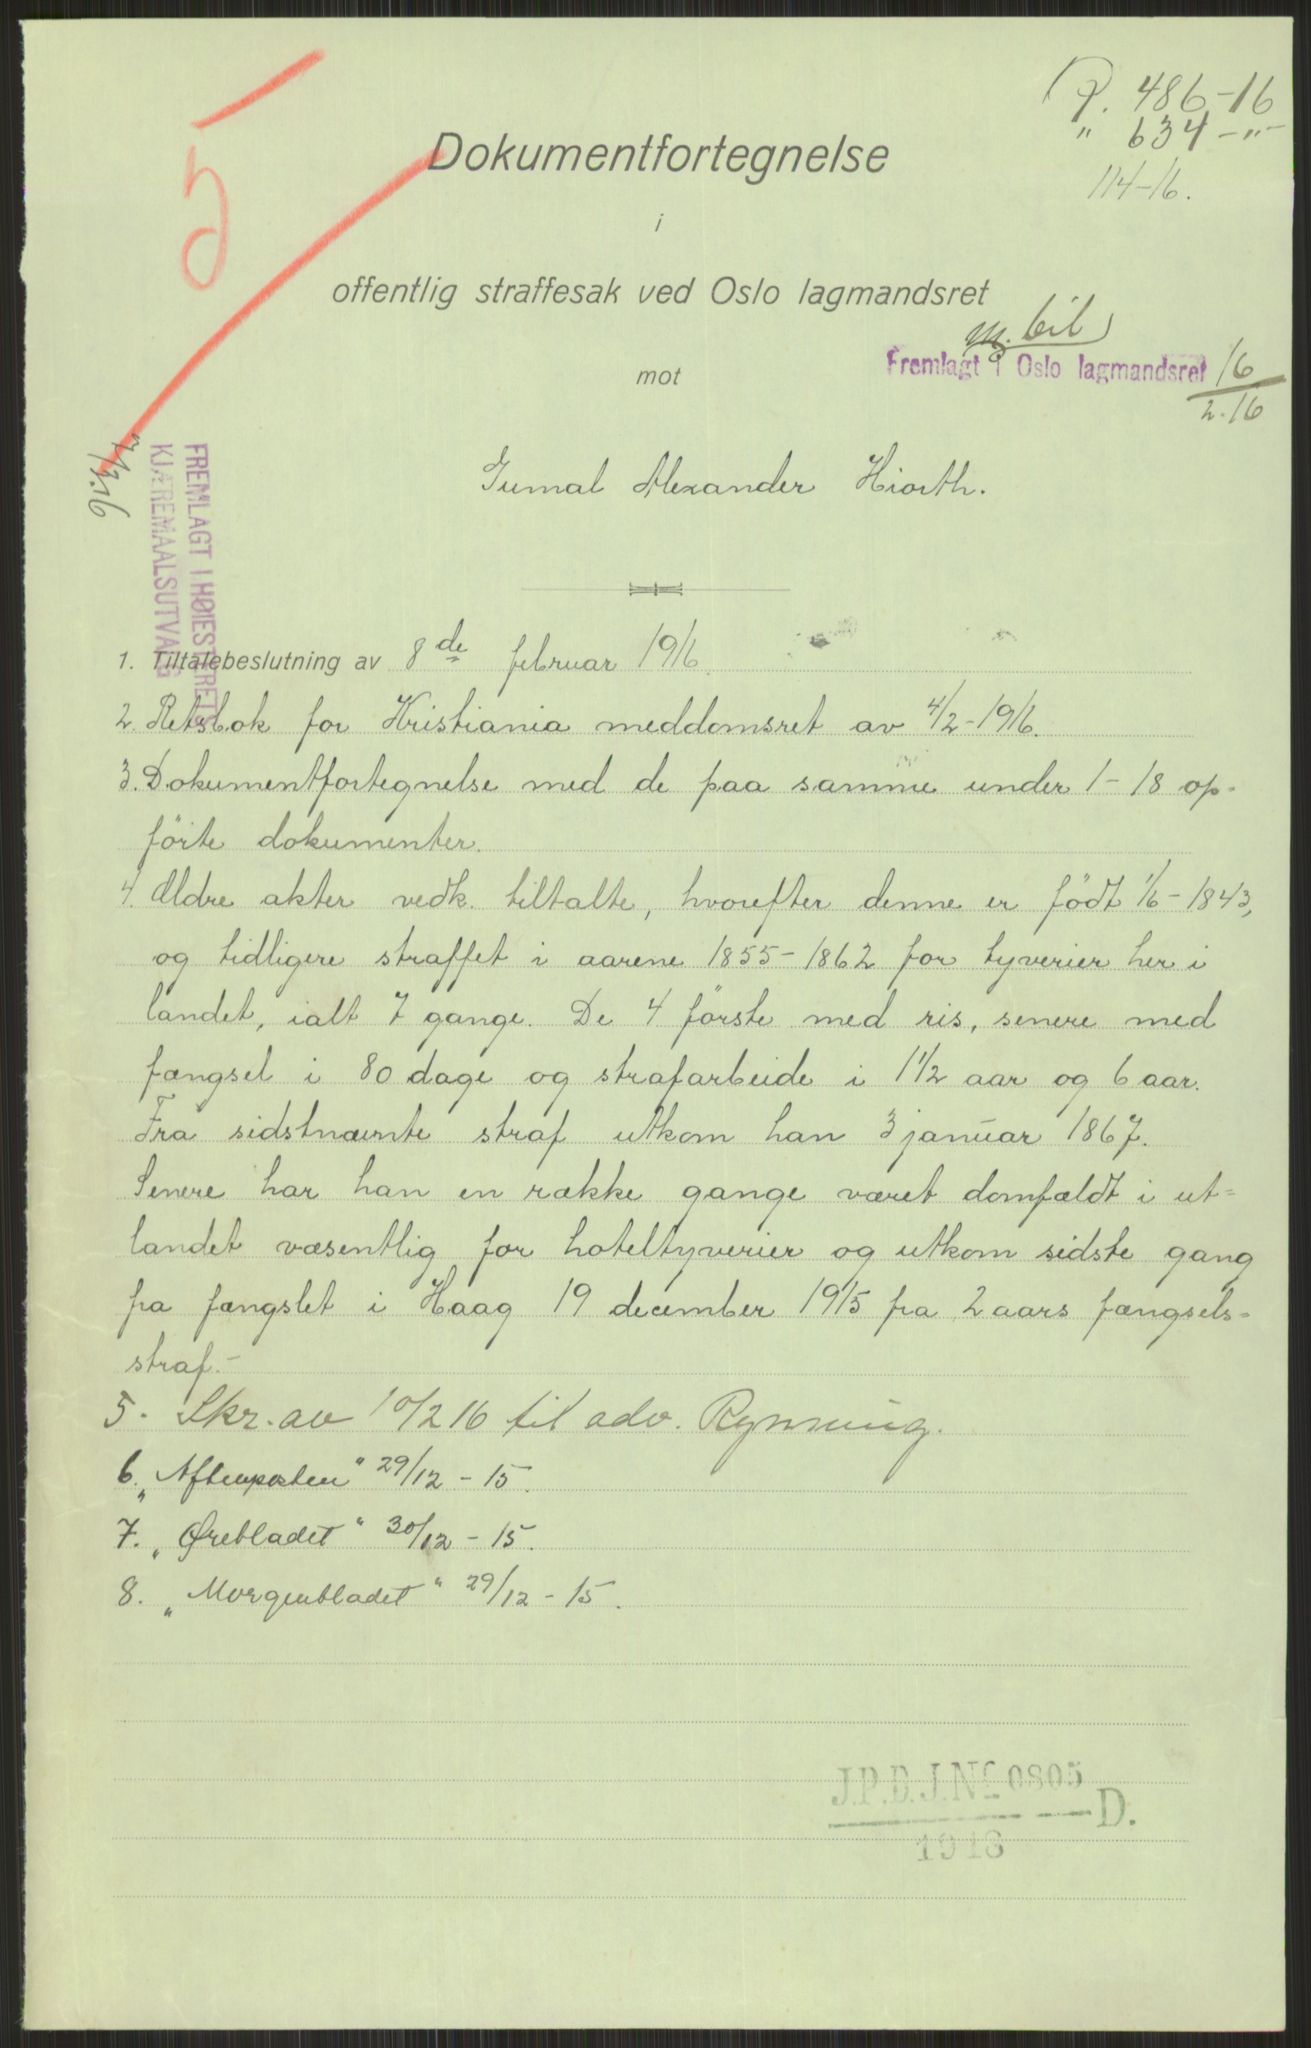 P. 486-16
" 634 -"-
114-16.
5
Dokumentfortegnelse
i
offentlig straffesak ved Oslo lagmandsret
m. bil
mot
Fremlagt i Oslo lagmandsret 16/2-16
FREMLAGT I HØIESTERETS
KJÆREMAALSUTVALG
2/3.16
Gumal Alexander Hiorth.
1. Tiltalebeslutning av 8de februar 1916.
2. Retsbok for Kristiania meddomsret av 4/2-1916.
3. Dokumentfortegnelse med de paa samme under 1-18 op-
førte dokumenter.
4. Ældre akter vedk. tiltalte, hvorefter denne er født 1/6-1843,
og tidligere straffet i aarene 1855-1862 for tyverier her i
landet, ialt 7 gange. De 4 første med ris, senere med
fængsel i 80 dage og strafarbeide i 1 1/2 aar og 6 aar.
Fra sidstnævnte straf utkom han 3 januar 1867.
Senere har han en række gange været domfældt i ut=
landet væsentlig for hoteltyverier og utkom sidste gang
fra fængslet i Haag 19 december 1915 fra 2 aars fængsels=
straf.-
5. Skr. av 10/2 16 til adv. Rynning.
6. „Aftenposten" 29/12 - 15.
7. „Ørebladet" 30/12 - 15.
8. „Morgenbladet" 29/12 - 15.
J.P.D.J.No 0805
D.
1916